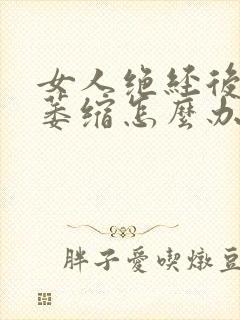 女人绝经後
萎缩怎麼办
胖子愛喫燉豆